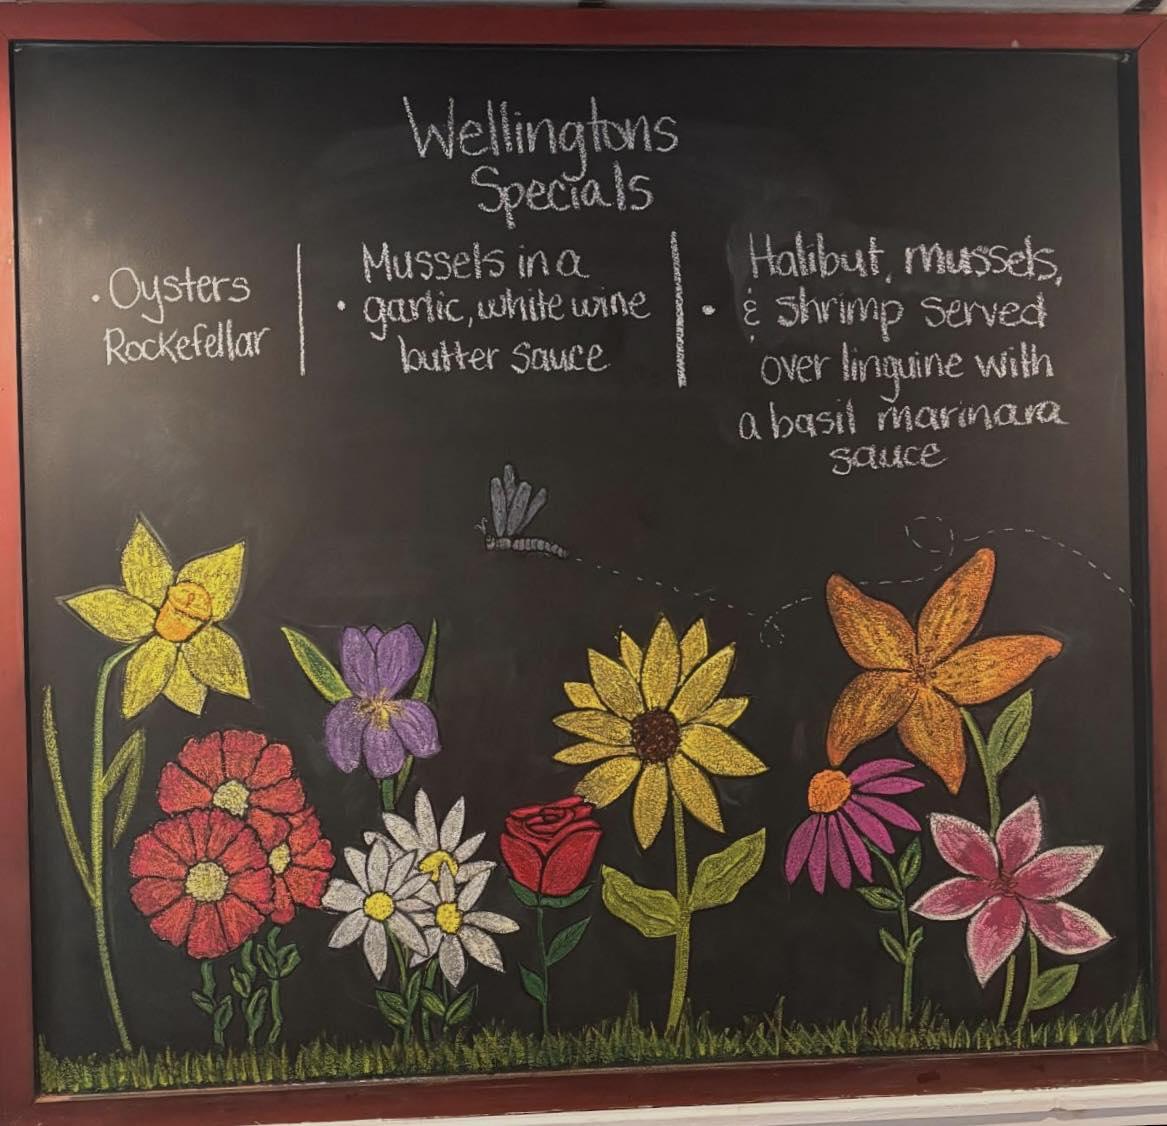 Wellingtons
Specials
• Oysters
Rockefellar
Mussels in a
• garlic, white wine
butter sauce
Halibut, mussels,
• & shrimp served
over linguine with
a basil marinara
sauce